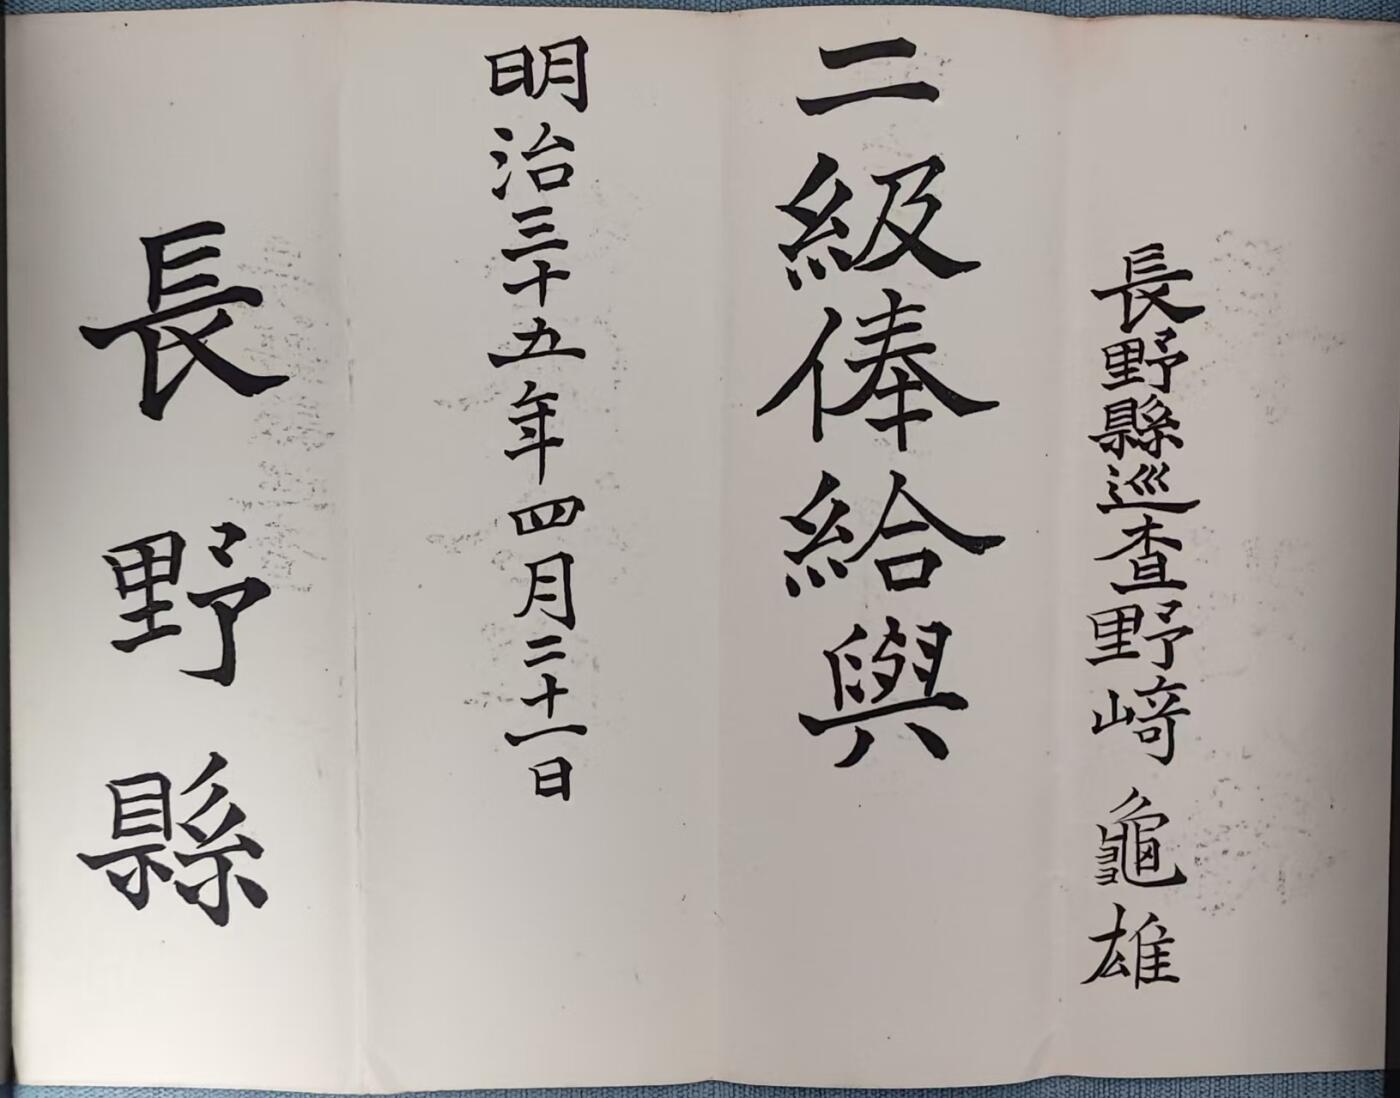 長野縣巡査野﨑龜雄
二級俸給與
明治三十五年四月二十一日
長野縣